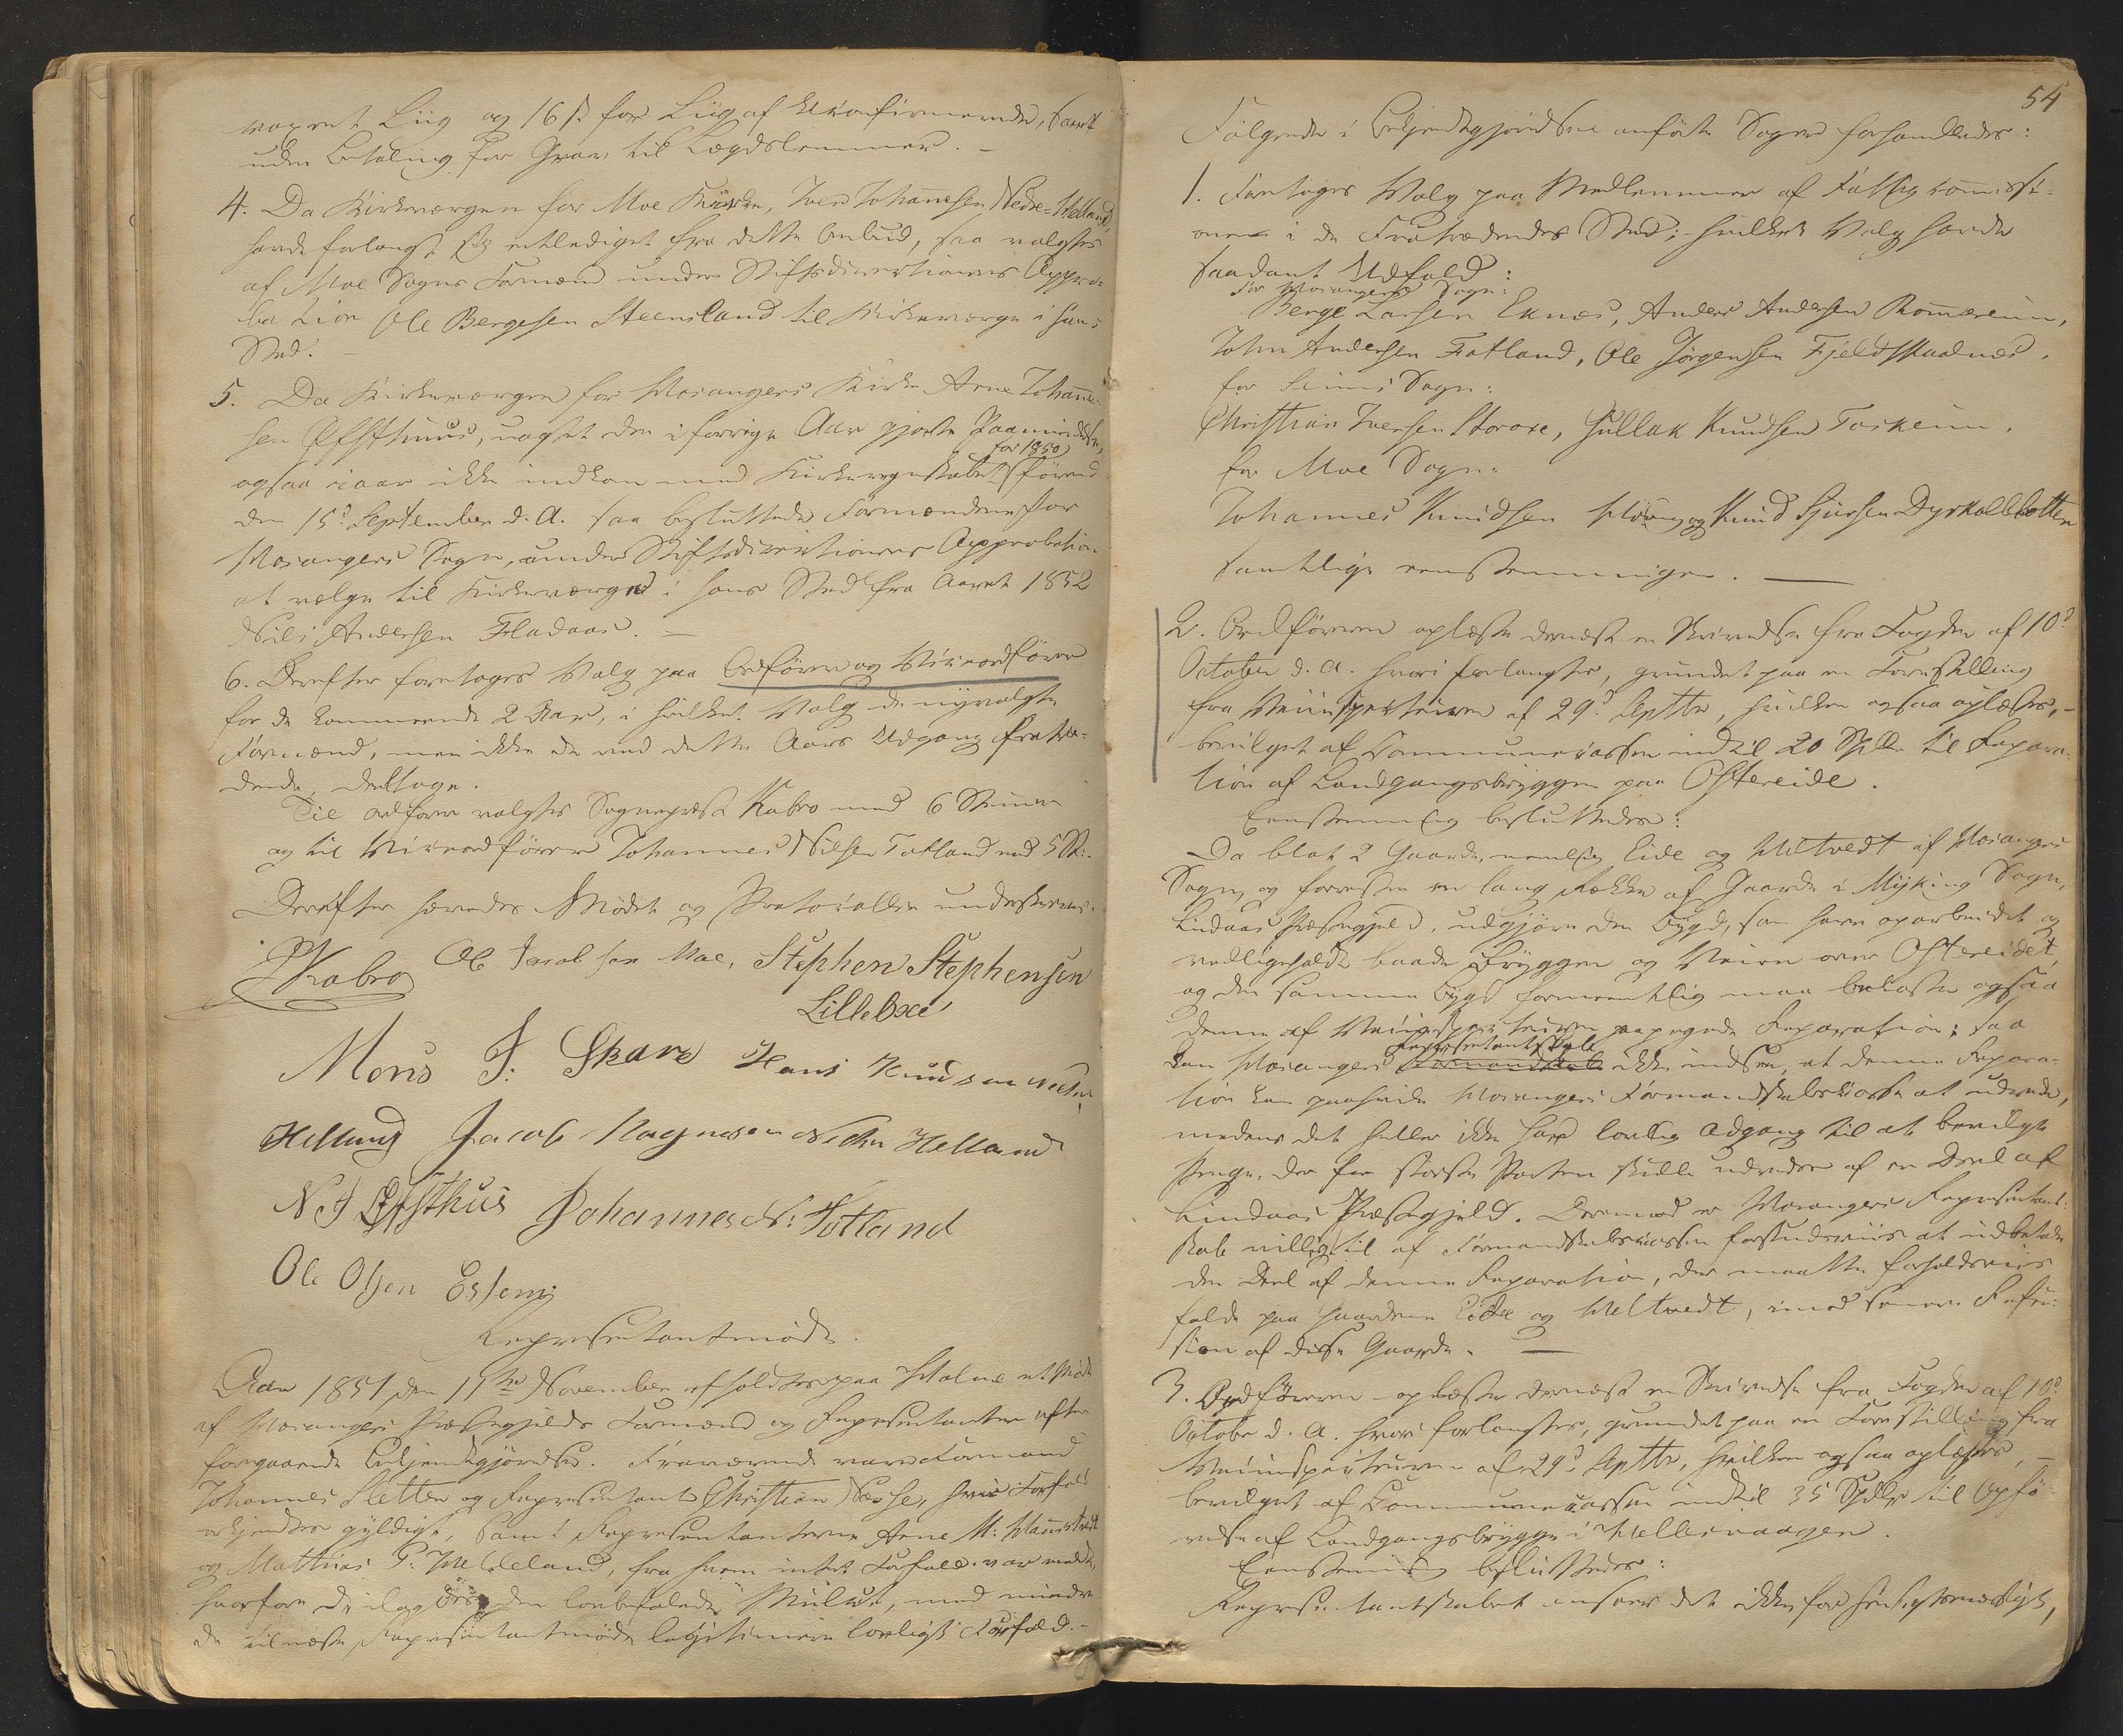 voxent Liig og 16 s for Liig af Ukonfirmerede, samt
uden Betaling for Grav til Lægdslemmer. –
4. Da Kirkeværgen for Moe Kirke, Iver Johannesen Nedre-Helland,
havde forlangt sig entlediget fra dette Ombud, saa valgtes
af Moe Sogns Formænd under Stiftsdirectionens Appro-
bation Ole Bergesen Steensland til Kirkeværge i hans
Sted. –
5. Da Kirkeværgen for Hosangers Kirke Arne Johanne-
sen Øfsthuus, uagtet den i forrige Aar gjorte Paamindelse,
ogsaa iaar ikke indkom med Kirkeregnskabet for 1850 førend
den 15d September d. A. saa besluttede Formændene for
Hosangers Sogn, under Stiftsdirectionens Approbation
at vælge til Kirkeværge i hans Sted fra Aaret 1852
Nils Andersen Fladaas. –
6. Derefter foretoges Valg paa Ordfører og Viceordfører
for de kommende 2 Aar, i hvilket Valg de nyvalgte
Formænd, men ikke de ved dette Aars Udgang fratræ-
dende, deeltoge.
Til Ordfører valgtes Sognepræst Kobro med 6 Stemmer
og til Viceordfører Johannes Nilsen Totland med 5 St.
Derefter hævedes Mødet og Protocollen underskreves.
Kobro Ole Jacobsen Moe, Stephen Stephensen
Lillebøe
Mons J. Skare Hans Knudsen Nedre
Helland Jacob Magnesen Nedre Helland
N J Øfsthus Johannes N: Totland
Ole Olsen Eslem
Representantmøde.
Aar 1851 den 11te November afholdtes paa Holme et Møde
af Hosangers Præstegjelds Formænd og Representanter efter
foregaaende Bekjendtgjørelse. Fraværende vare Formand
Johannes Sletten og Representant Christian Næsse, hvis Forfald
erkjendtes gyldigt, samt Representanterne Arne M:
og Mathias P. Helleland, fra hvem intet Forfald var meldt,
hvorfor de ilagdes den lovbefalede Mulct, med mindre
de til næste Representantmøde legitimere lovligt Forfald. –
54
Følgende i Bekjendtgjørelsen anførte Sager forhandledes:
1. Foretoges Valg paa Medlemmer af Fattigcommissi-
onen i de Fratrædendes Sted; hvilket Valg havde
saadant Udfald:
For Hosangers Sogn:
Berge Larsen Eknæs, Anders Andersen Romarheim,
John Andersen Fatland, Ole Jørgensen Fjeldskaalnæs.
for Seims Sogn:
Christian Iversen Storoxe, Gullak Knudsen Toskeim.
for Moe Sogn:
Johannes Knudsen og Knud Sjursen Dyrkolbotten
samtlige eenstemmigen. —
2. Ordføreren oplæste dernæst en Skrivelse fra Fogden af 10d
October d. A. hvori forlangtes, grundet paa en Forestilling
fra Veiinspecteuren af 29d Septbr, hvilken ogsaa oplæstes, –
bevilget af Communecassen indtil 20 Spdlr til Repara-
tion af Landgangsbryggen paa Ostereide.
Eenstemmig besluttedes:
Da blot 2 Gaarde, nemlig Eide og Heltvedt af Hosangers
Sogn, og forresten en lang Række af Gaarde i Myking Sogn,
Lindaas Præstegjeld, udgjøre den Bygd, som have oparbeidet og
vedligeholdt baade Bryggen og Veien over Ostereidet,
og den samme Bygd formeentlig maa bekoste ogsaa
denne af Veiinspecteuren paapegede Reparation; saa
kan Hosangers Formandskab Representantskab ikke indsee, at denne Repara-
tion kan paahvile Hosangers Formandskabskasse at udrede,
medens det heller ikke har lovlig Adgang til at bevilge
Penge, der for største Parten skulle udredes af en Deel af
Lindaas Præstegjeld. Derimod er Hosangers Representant-
skab villig til af Formandskabskassen forskudsviis at udbetale
den Deel af denne Reparation, der maatte forholdsviis
falde paa Gaardene Eide og Heltvedt, imod senere Refu-
sion af disse Gaarde. —
3. Ordføreren oplæste dernæst en Skrivelse fra Fogden af 10d
Octobr d. A. hvori forlangtes, grundet paa en Forestilling fra
Veiinspecteuren af 29d Septbr, hvilken ogsaa oplæstes, –
bevilget af Communecassen indtil 35 Spdlr til Opfø-
relse af Landgangsbrygge i Hellesvaagen.
Eenstemmig besluttedes:
Representantskabet anseer det ikke for hensigtsmæssigt,